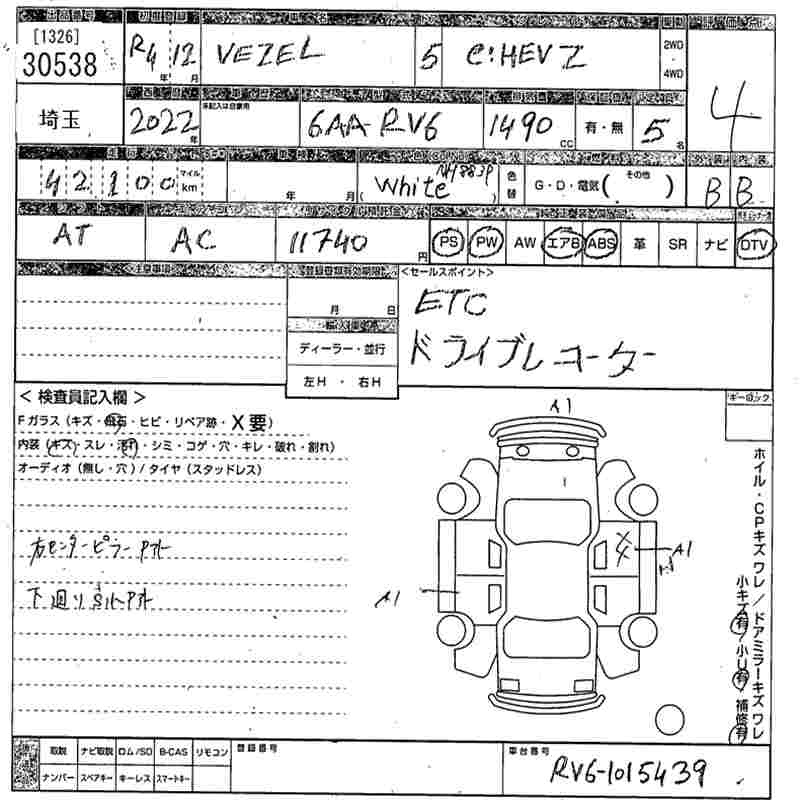 [1326]
30538
R4 年 12 月
VEZEL
5
e:HEV Z
2WD
・
4WD
4
埼玉
2022 年
未記入は自家用
6AA-RV6
1490 CC
有・無
5 名
42100 マイル km
年 月
White NH883P
色替
G・D・電気( その他 )
B B
AT
AC
11740 円
PS PW AW エアB ABS 革 SR ナビ DTV
注意事項
登録書類有効期限
月 日
輸入車
ディーラー・並行
左H ・ 右H
<セールスポイント>
ETC
ドライブレコーダー
< 検査員記入欄 >
Fガラス(キズ・飛石・ヒビ・リペア跡・X要)
内装(キズ・スレ・汚れ・シミ・コゲ・穴・キレ・破れ・割れ)
オーディオ(無し・穴)/タイヤ(スタッドレス)
右センターピラー
下廻り
キーロック
A1
A1
A1
ホイル・CPキズワレ/ドアミラーキズワレ
小キズ有/小U有/補修有
取説 ナビ取説 ロム/SD B-CAS リモコン
ナンバー スペアキー キーレス スマートキー
登録番号
車台番号
RV6-1015439